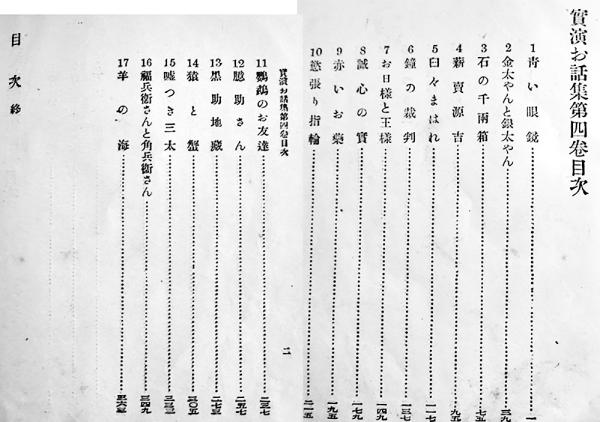 實演お話集第四卷目次
1 青い眼鏡 一
2 金太やんと銀太やん 三九
3 石の千兩箱 七五
4 薪賣源吉 九五
5 臼々まはれ 一一七
6 鐘の裁判 一三七
7 お日樣と王樣 一四九
8 誠心の實 一七九
9 赤いお藥 一九五
10 慾張り指輪 二一五
實演お話集第四卷目次 二
11 鸚鵡のお友達 二三七
12 臆助さん 二五七
13 黑助地藏 二七五
14 猿と蟹 三〇五
15 嘘つき三太 三三三
16 福兵衞さんと角兵衞さん 三四九
17 羊の海 三六五
目次終